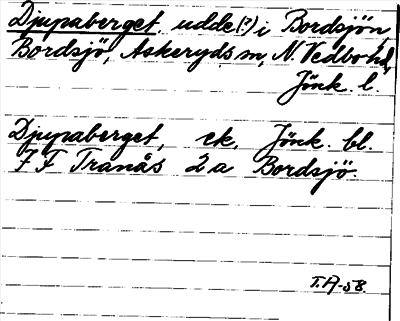 Djupaberget, udde(?) i Bordsjön,
Bordsjö, Askeryds sn, N. Vedbo hd,
Jönk. l.
Djupaberget, ek. Jönk. bl.
7 F Tranås 2 a Bordsjö.
T.A-58.